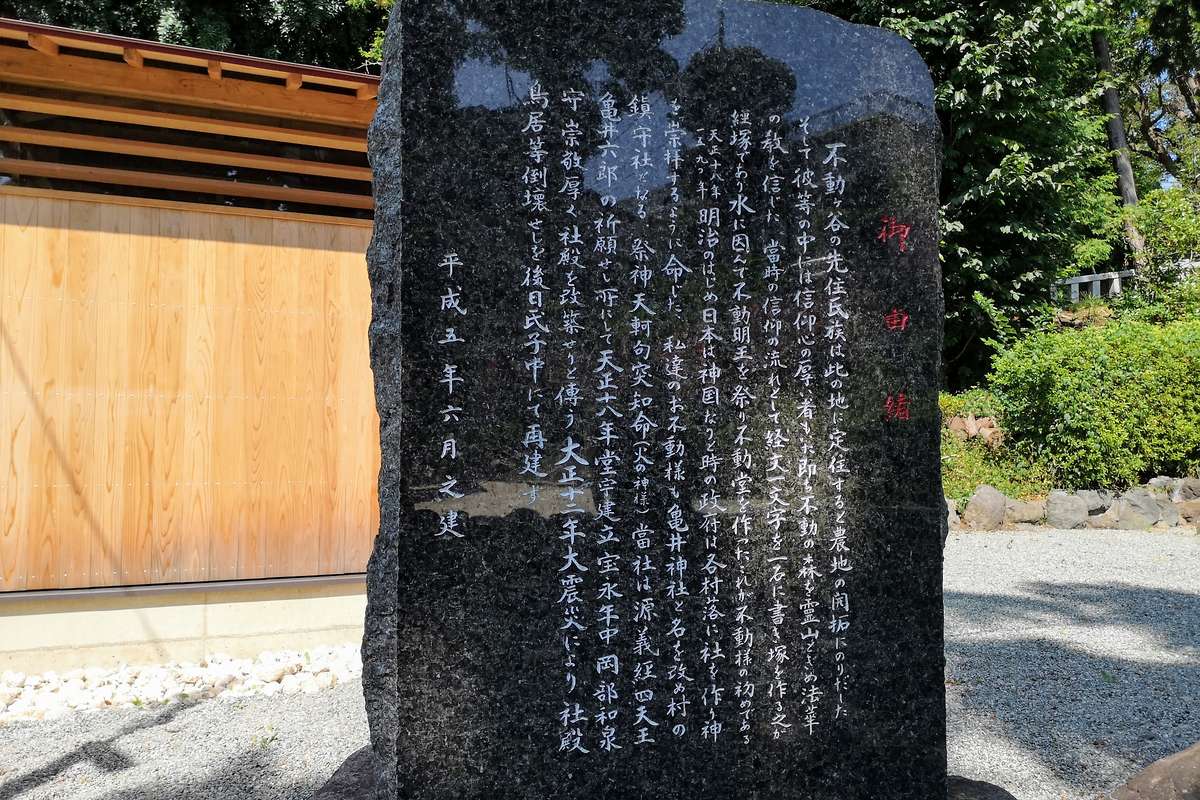 御由緒
不動ヶ谷の先住民族は此の地に定住すると農地の開拓にのりだした
そして彼等の中には信仰心の厚い者もお即ち不動の森を霊山とあがめ法華
の教を信した 當時の信仰の流れとして経文一文字を一石に書き塚を作る之が
経塚であり水に因んで不動明王を祭り不動堂を作たこれが不動様の初めである
天正十八年 明治のはじめ日本は神国なりと時の政府は各村落に社を作り神
を崇拝するように命した、私達のお不動様も亀井神社と名を改め村の
鎮守社となる 祭神天軻句突知命(火の神様)當社は源義経四天王
亀井六郎の祈願せし所にして天正十八年堂宇建立宝永年中岡部和泉
守崇敬厚く社殿を改築せりと傳う大正十二年大震災により社殿
鳥居等倒壊せしを後日氏子中にて再建す
平成五年六月之建